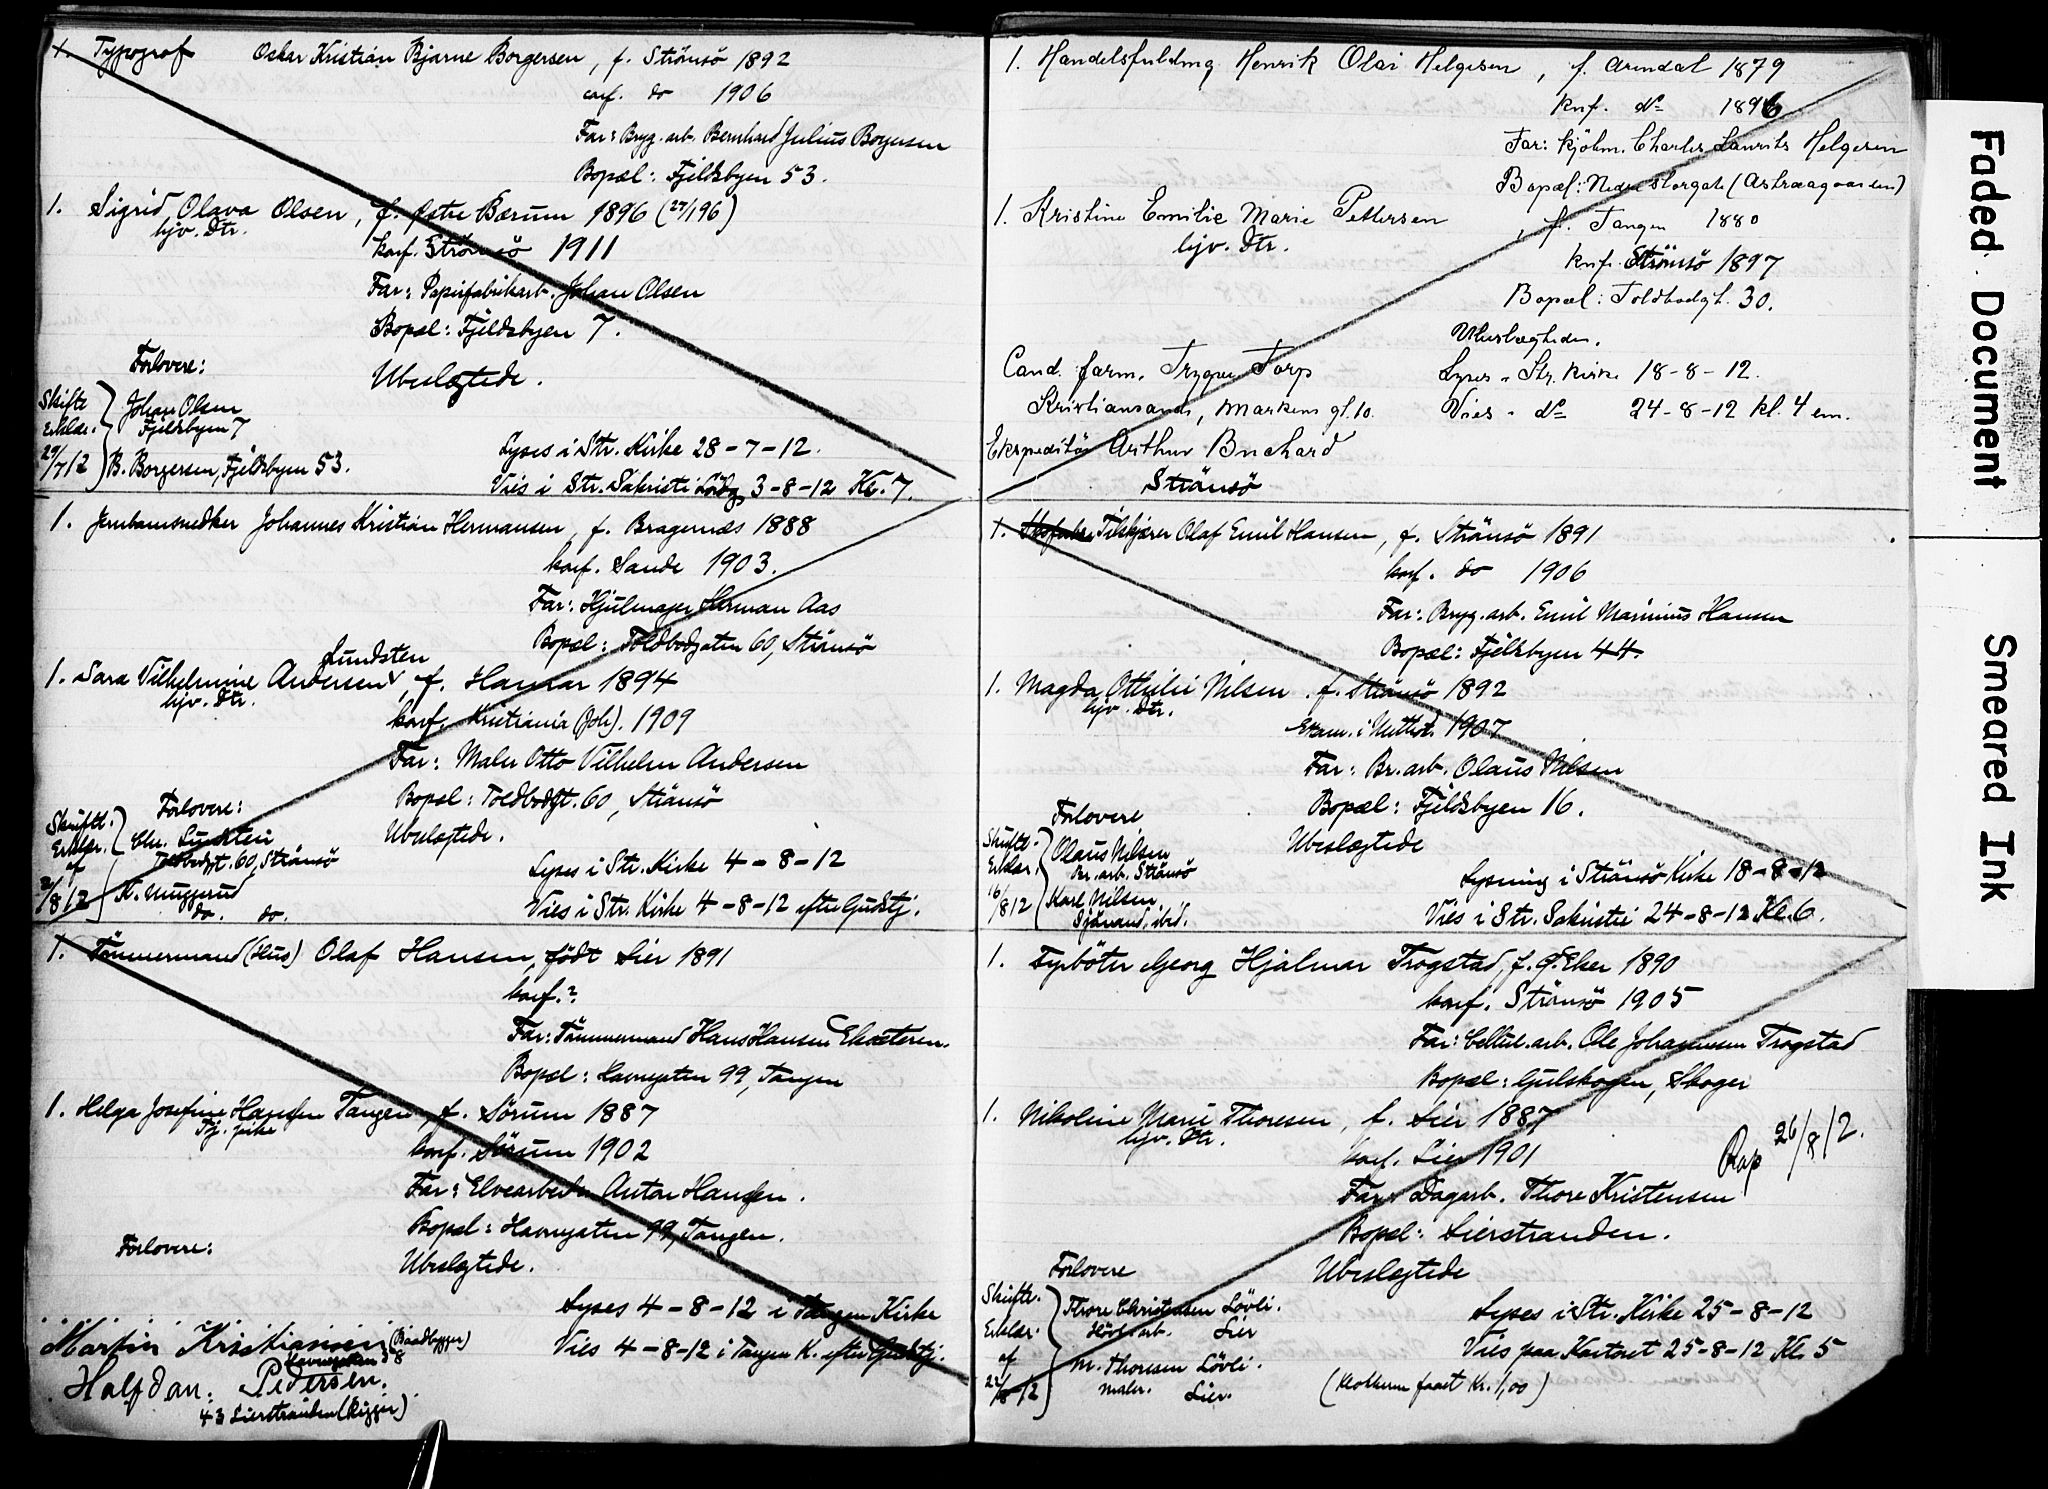 1. Typograf Oskar Kristian Bjarne Borgersen, f. Strömsö 1892
conf. do 1906
Far: Bryg. arb. Bernhard Julius Borgersen
Bopæl: Fjeldsbyen 53.
1. Sigrid Olava Olsen, f. Østre Bærum 1896 (27/1 96)
hjv. Dtr.
konf. Strömsö 1911
Far: Papirfabrikarb. Johan Olsen
Bopæl: Fjeldsbyen 7.
Forlovere:
Ubeslægtede.
Skiftl. Johan Olsen
Erklær. Fjeldsbyen 7
29/7 12 B. Borgersen, Fjeldsbyen 53.
Lyses i Str. Kirke 28-7-12.
Vies i Str. Sakristi Lördg. 3-8-12 Kl. 7.
1. Jernbanesnedker Johannes Kristian Hermansen, f. Bragernæs 1888
konf. Sande 1903.
Far: Hjulmager Herman Aas
Bopæl: Toldbodgaten 60, Strömsö
Lundsten
1. Sara Vilhelmine Andersen, f. Hamar 1894
hjv. Dtr.
konf. Kristiania (Joh). 1909
Far: Maler Otto Vilhelm Andersen
Bopæl: Toldbodgt. 60, Strömsö
Forlovere:
Ubeslægtede.
Skriftl. Chr. Lundsten
Erklær. Toldbodgt. 60, Strömsö
af
2/8 12 K. Muggerud
do. do.
Lyses i Str. Kirke 4-8-12
Vies i Str. Kirke 4-8-12 efter Gudstj.
1. Tömmermand (Hus) Olaf Hansen, födt Lier 1891
konf.?
Far: Tömmermand Hans Hansen Eksæteren.
Bopæl: Havnegaten 99, Tangen
1. Helga Josefine Hansen Tangen, f. Sörum 1887
Tj. pike
konf. Sörum 1902
Far: Elvearbeider Anton Hansen.
Bopæl: Havnegaten 99, Tangen.
Forlovere:
Ubeslægtede.
Lyses 4-8-12 i Tangen Kirke
Martin Kristiansen (Baadbygger)
Havnegaten 78
Vies 4-8-12 i Tangen K. efter Gudstj.
Halfdan Pedersen.
43 Lierstranden (Rigger)
1. Handelsfuldmg. Henrik Olai Helgesen, f. Arendal 1879
knf. do 1896
Far: Kjöbm. Charles Laurits Helgesen
Bopæl: Nedre Storgate (Astræagaarden)
1. Kristine Emilie Marie Pettersen, f. Tangen 1880
hjv. Dtr.
knf. Strömsö 1897
Bopæl: Toldbodgt. 30.
Ubeslægtede.
Cand. farm. Trygve Torp
Kristiansand, Markens gt. 10.
Lyses - Str. Kirke 18-8-12.
Vies - do 24-8-12 kl. 4 em.
Ekspeditör Arthur Buchard
Strömsö
1. Tilskjærer Olaf Emil Hansen, f. Strömsö 1891
konf. do 1906
Far: Bryg. arb. Emil Marinius Hansen
Bopæl: Fjeldsbyen 44.
1. Magda Othilie Nilsen, f. Strömsö 1892
hjv. Dtr.
Exam. i Methot. 1907
Far: Br. arb. Olaus Nilsen
Bopæl: Fjeldsbyen 16.
Forlovere
Ubeslægtede
Skriftl. Olaus Nilsen
Erklær. Br. arb. Strömsö
16/8 12 Karl Nilsen
Sjömand, ibid.
Lysning i Strömsö Kirke 18-8-12
Vies i Str. Sakristi 24-8-12 Kl. 6.
1. Fyrböter Georg Hjalmar Trogstad, f. Ø. Eker 1890
konf. Strömsö 1905
Far: Cellul. arb. Ole Johannesen Trogstad
Bopæl: Gulskogen, Skoger
1. Nikoline Marie Thoresen, f. Lier 1887
hjv. Dtr.
Rap 26/8 12.
konf. Lier 1901
Far: Dagarb. Thore Kristensen
Bopæl: Lierstranden.
Forlovere
Ubeslægtede
Skriftl. Thore Christensen Lövli.
Erklær. Lier
af
22/8 12 M. Thoresen Lövli.
Maler. Lier.
Lyses i Str. Kirke 25-8-12
Vies paa Kontoret 25-8-12 Kl. 5
(Klokkeren faaet Kr. 1,00)
Faded Document
Smeared Ink